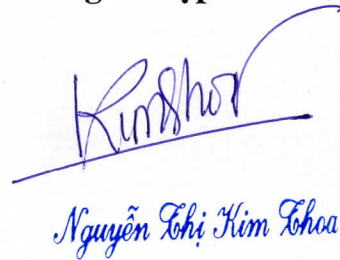 Kimthoa
Nguyễn Thị Kim Thoa